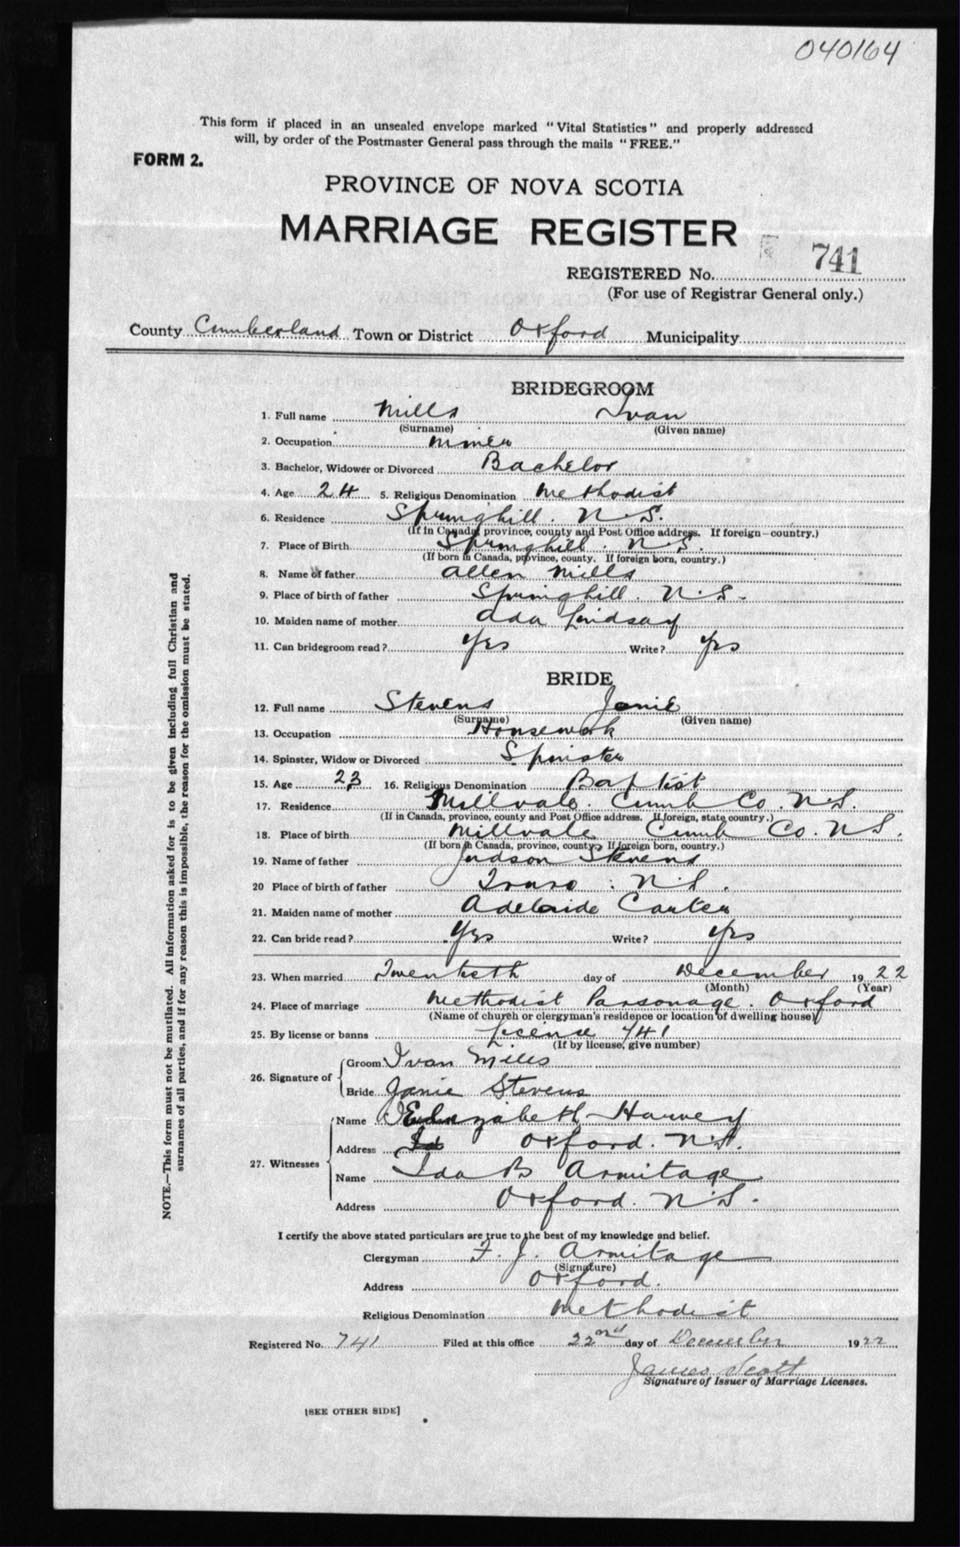 040164
This form if placed in an unsealed envelope marked "Vital Statistics" and properly addressed
will, by order of the Postmaster General pass through the mails "FREE."
FORM 2.
PROVINCE OF NOVA SCOTIA
MARRIAGE REGISTER
741
REGISTERED No.
(For use of Registrar General only.)
County Cumberland Town or District Oxford Municipality
BRIDEGROOM
1. Full name Mills Ivan
(Surname) (Given name)
2. Occupation miner
3. Bachelor, Widower or Divorced Bachelor
4. Age 24 5. Religious Denomination Methodist
6. Residence Springhill. N.S.
(If in Canada, province, county and Post Office address. If foreign—country.)
7. Place of Birth Springhill N.S.
(If born in Canada, province, county. If foreign born, country.)
8. Name of father Allen Mills
9. Place of birth of father Springhill. N.S.
10. Maiden name of mother Ada Lindsay
11. Can bridegroom read? Yes Write? Yes
BRIDE
12. Full name Stevens Janie
(Surname) (Given name)
13. Occupation Housework
14. Spinster, Widow or Divorced Spinster
15. Age 23 16. Religious Denomination Baptist
17. Residence Millvale. Cumb Co. N.S.
(If in Canada, province, county and Post Office address. If foreign, state country.)
18. Place of birth Millvale Cumb Co. N.S.
(If born in Canada, province, county. If foreign born, country.)
19. Name of father Judson Stevens
20 Place of birth of father Truro : N.S.
21. Maiden name of mother Adelaide Carter
22. Can bride read? Yes Write? Yes
23. When married Twentieth day of December 1922
(Month) (Year)
24. Place of marriage Methodist Parsonage. Oxford
(Name of church or clergyman's residence or location of dwelling house)
25. By license or banns License 741
(If by license, give number)
26. Signature of
Groom Ivan Mills
Bride Janie Stevens
27. Witnesses
Name Elizabeth Harvey
Address Oxford. N.S.
Name Ida B Armitage
Address Oxford. N.S.
I certify the above stated particulars are true to the best of my knowledge and belief.
Clergyman F. J. Armitage
(Signature)
Address Oxford.
Religious Denomination Methodist
Registered No. 741 Filed at this office 22nd day of December 1922
James Scott
Signature of Issuer of Marriage Licenses.
[SEE OTHER SIDE]
NOTE.—This form must not be mutilated. All information asked for is to be given including full Christian and
surnames of all parties, and if for any reason this is impossible, the reason for the omission must be stated.